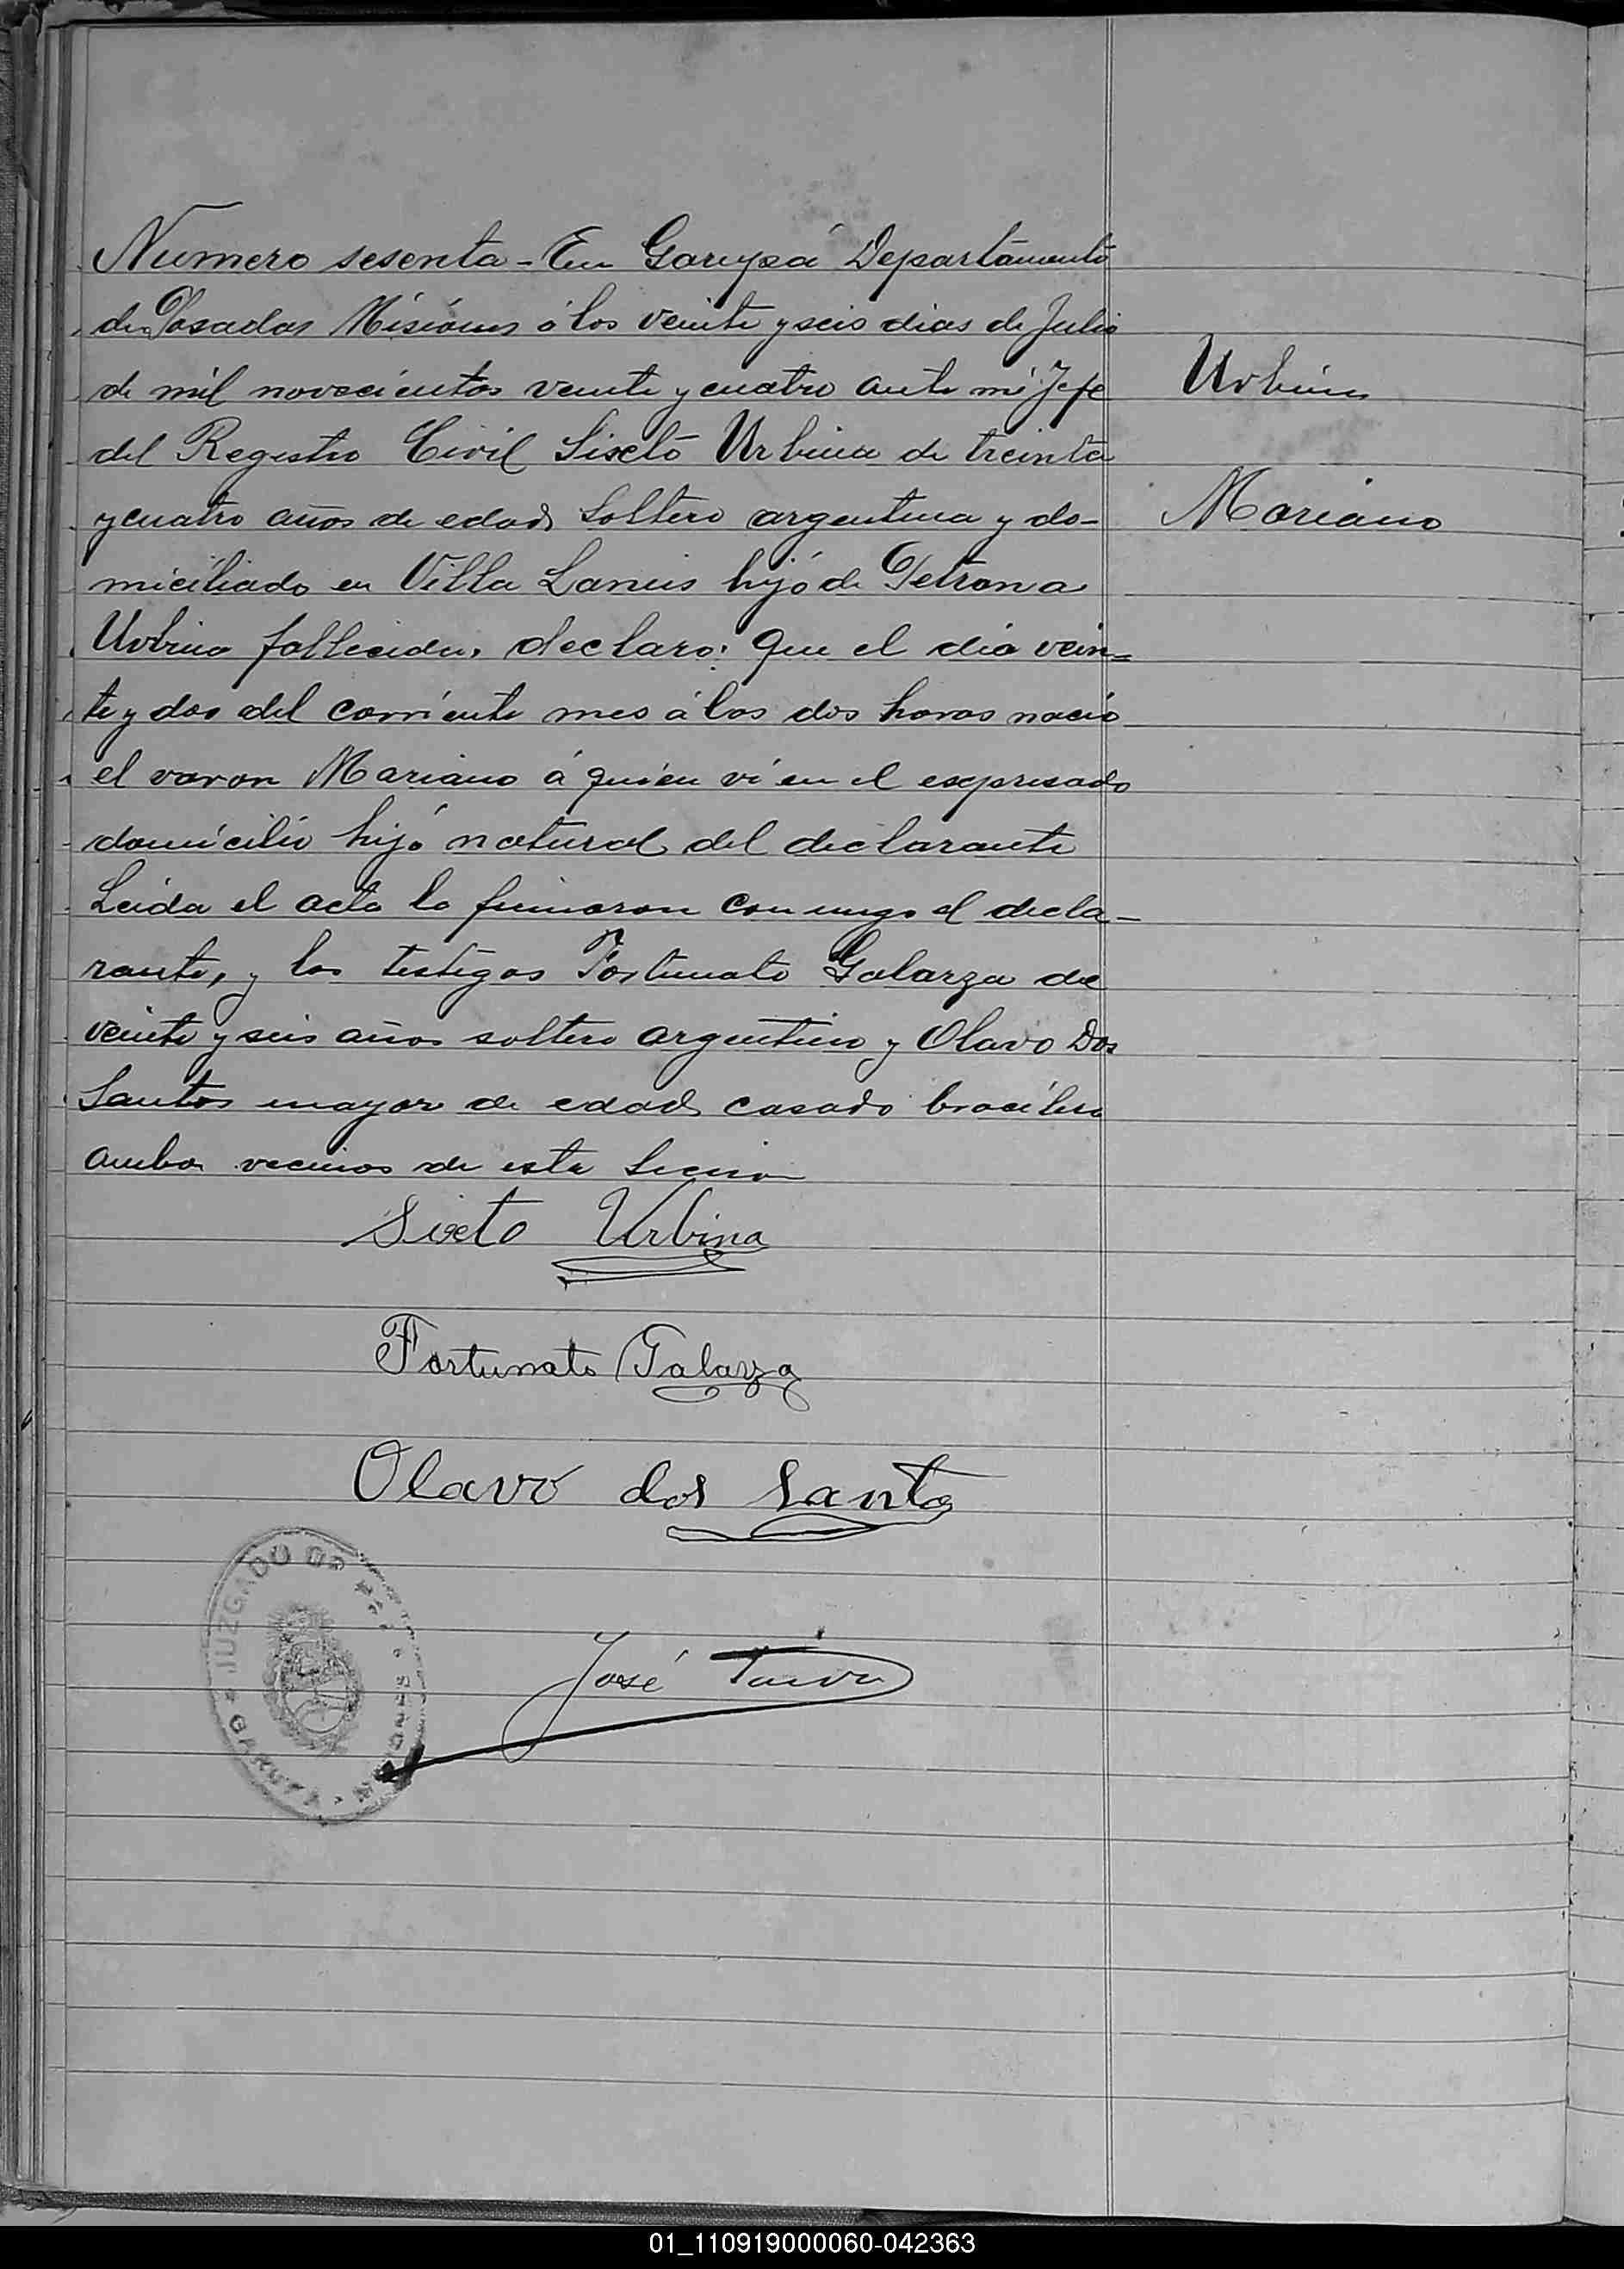 Numero sesenta - En Garupá Departamento
de Posadas Misiones á los veinte y seis dias de Julio
de mil novecientos veinte y cuatro ante mi Jefe
del Registro Civil Sixto Urbina de treinta
y cuatro años de edad soltero argentino y do-
miciliado en Villa Lanus hijo de Petrona
Urbina fallecida, declaro: Que el dia vein=
te y dos del corriente mes á las dos horas nació
el varon Mariano á quien vi en el expresado
domicilio hijo natural del declarante
Leida el acta la firmaron conmigo el decla-
rante, y los testigos Fortunato Galarza de
veinte y seis años soltero argentino y Olavo Dos
Santos mayor de edad casado bracilero
ambos vecinos de esta
Urbina
Mariano
Sixto Urbina
Fortunato Galarza
Olavo dos Santos
José
JUZGADO DE PAZ
GARUPA
01_110919000060-042363